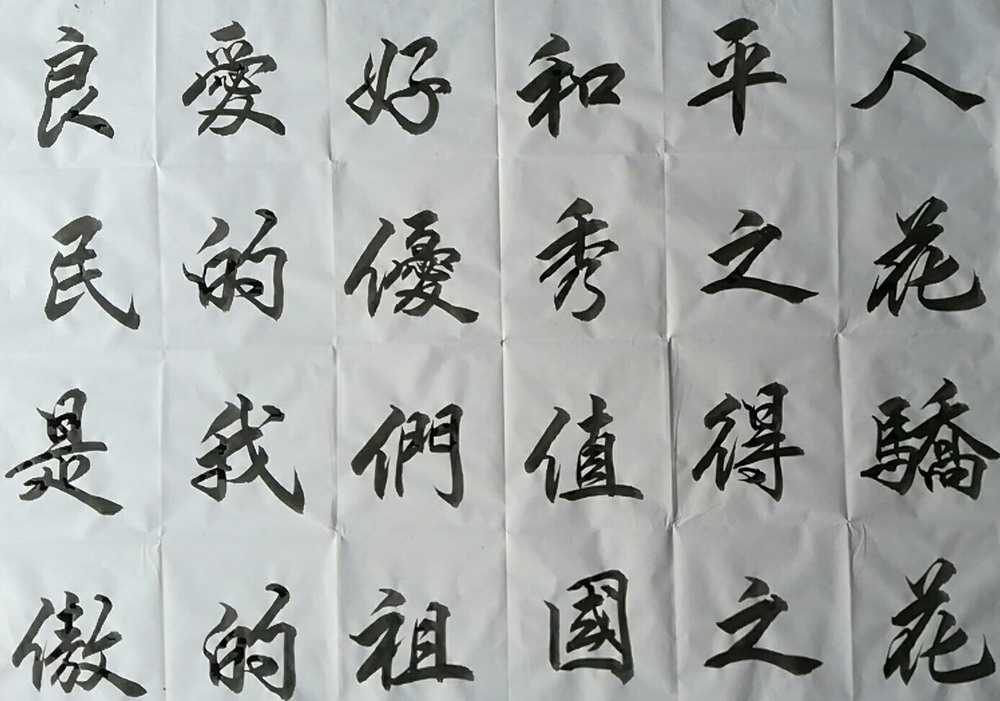 良愛好和平人
民的優秀之花
是我們值得驕
傲的祖國之花